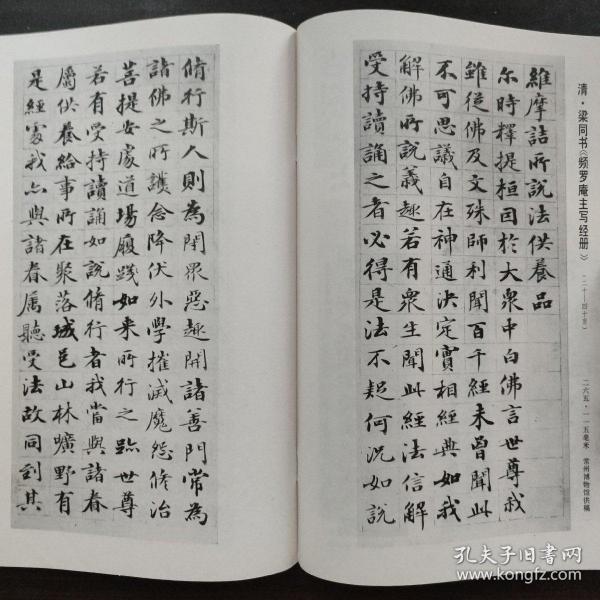 清·梁同书《频罗庵主写经册》
(二十—四十页)
二六五·一一五毫米 常州博物馆供稿
維摩詰所說法供養品
尒時釋提桓因於大衆中白佛言世尊我
雖從佛及文殊師利聞百千經未曾聞此
不可思議自在神通決定實相經典如我
解佛所說義趣若有衆生聞此經法信解
受持讀誦之者必得是法不疑何況如說
脩行斯人則為閉眾惡趣開諸善門常為
諸佛之所護念降伏外學摧滅魔怨脩治
菩提安處道場履踐如来所行之跡世尊
若有受持讀誦如說脩行者我當與諸眷
屬供養給事所在聚落城邑山林曠野有
是經處我亦與諸眷属聽受法故同到其
孔夫子旧书网
www.kongfz.com